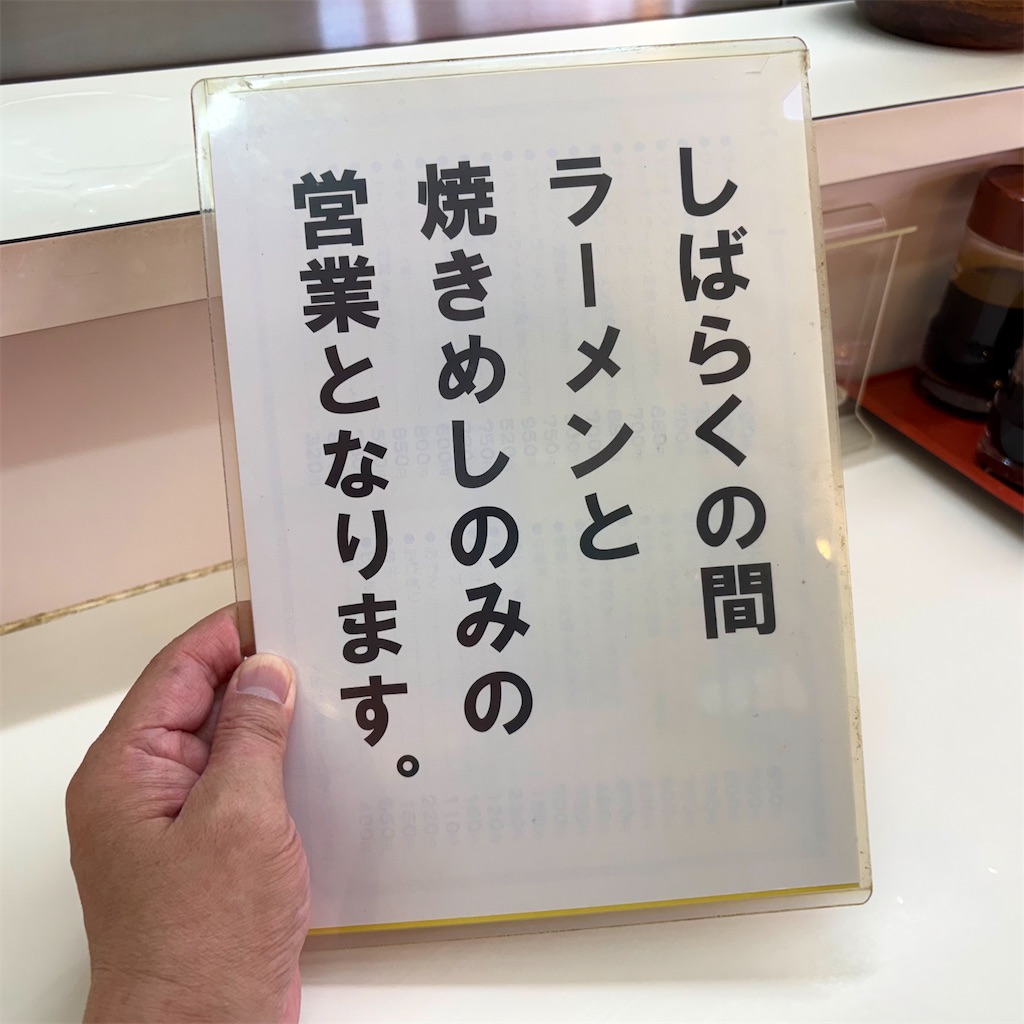 しばらくの間
ラーメンと
焼きめしのみの
営業となります。